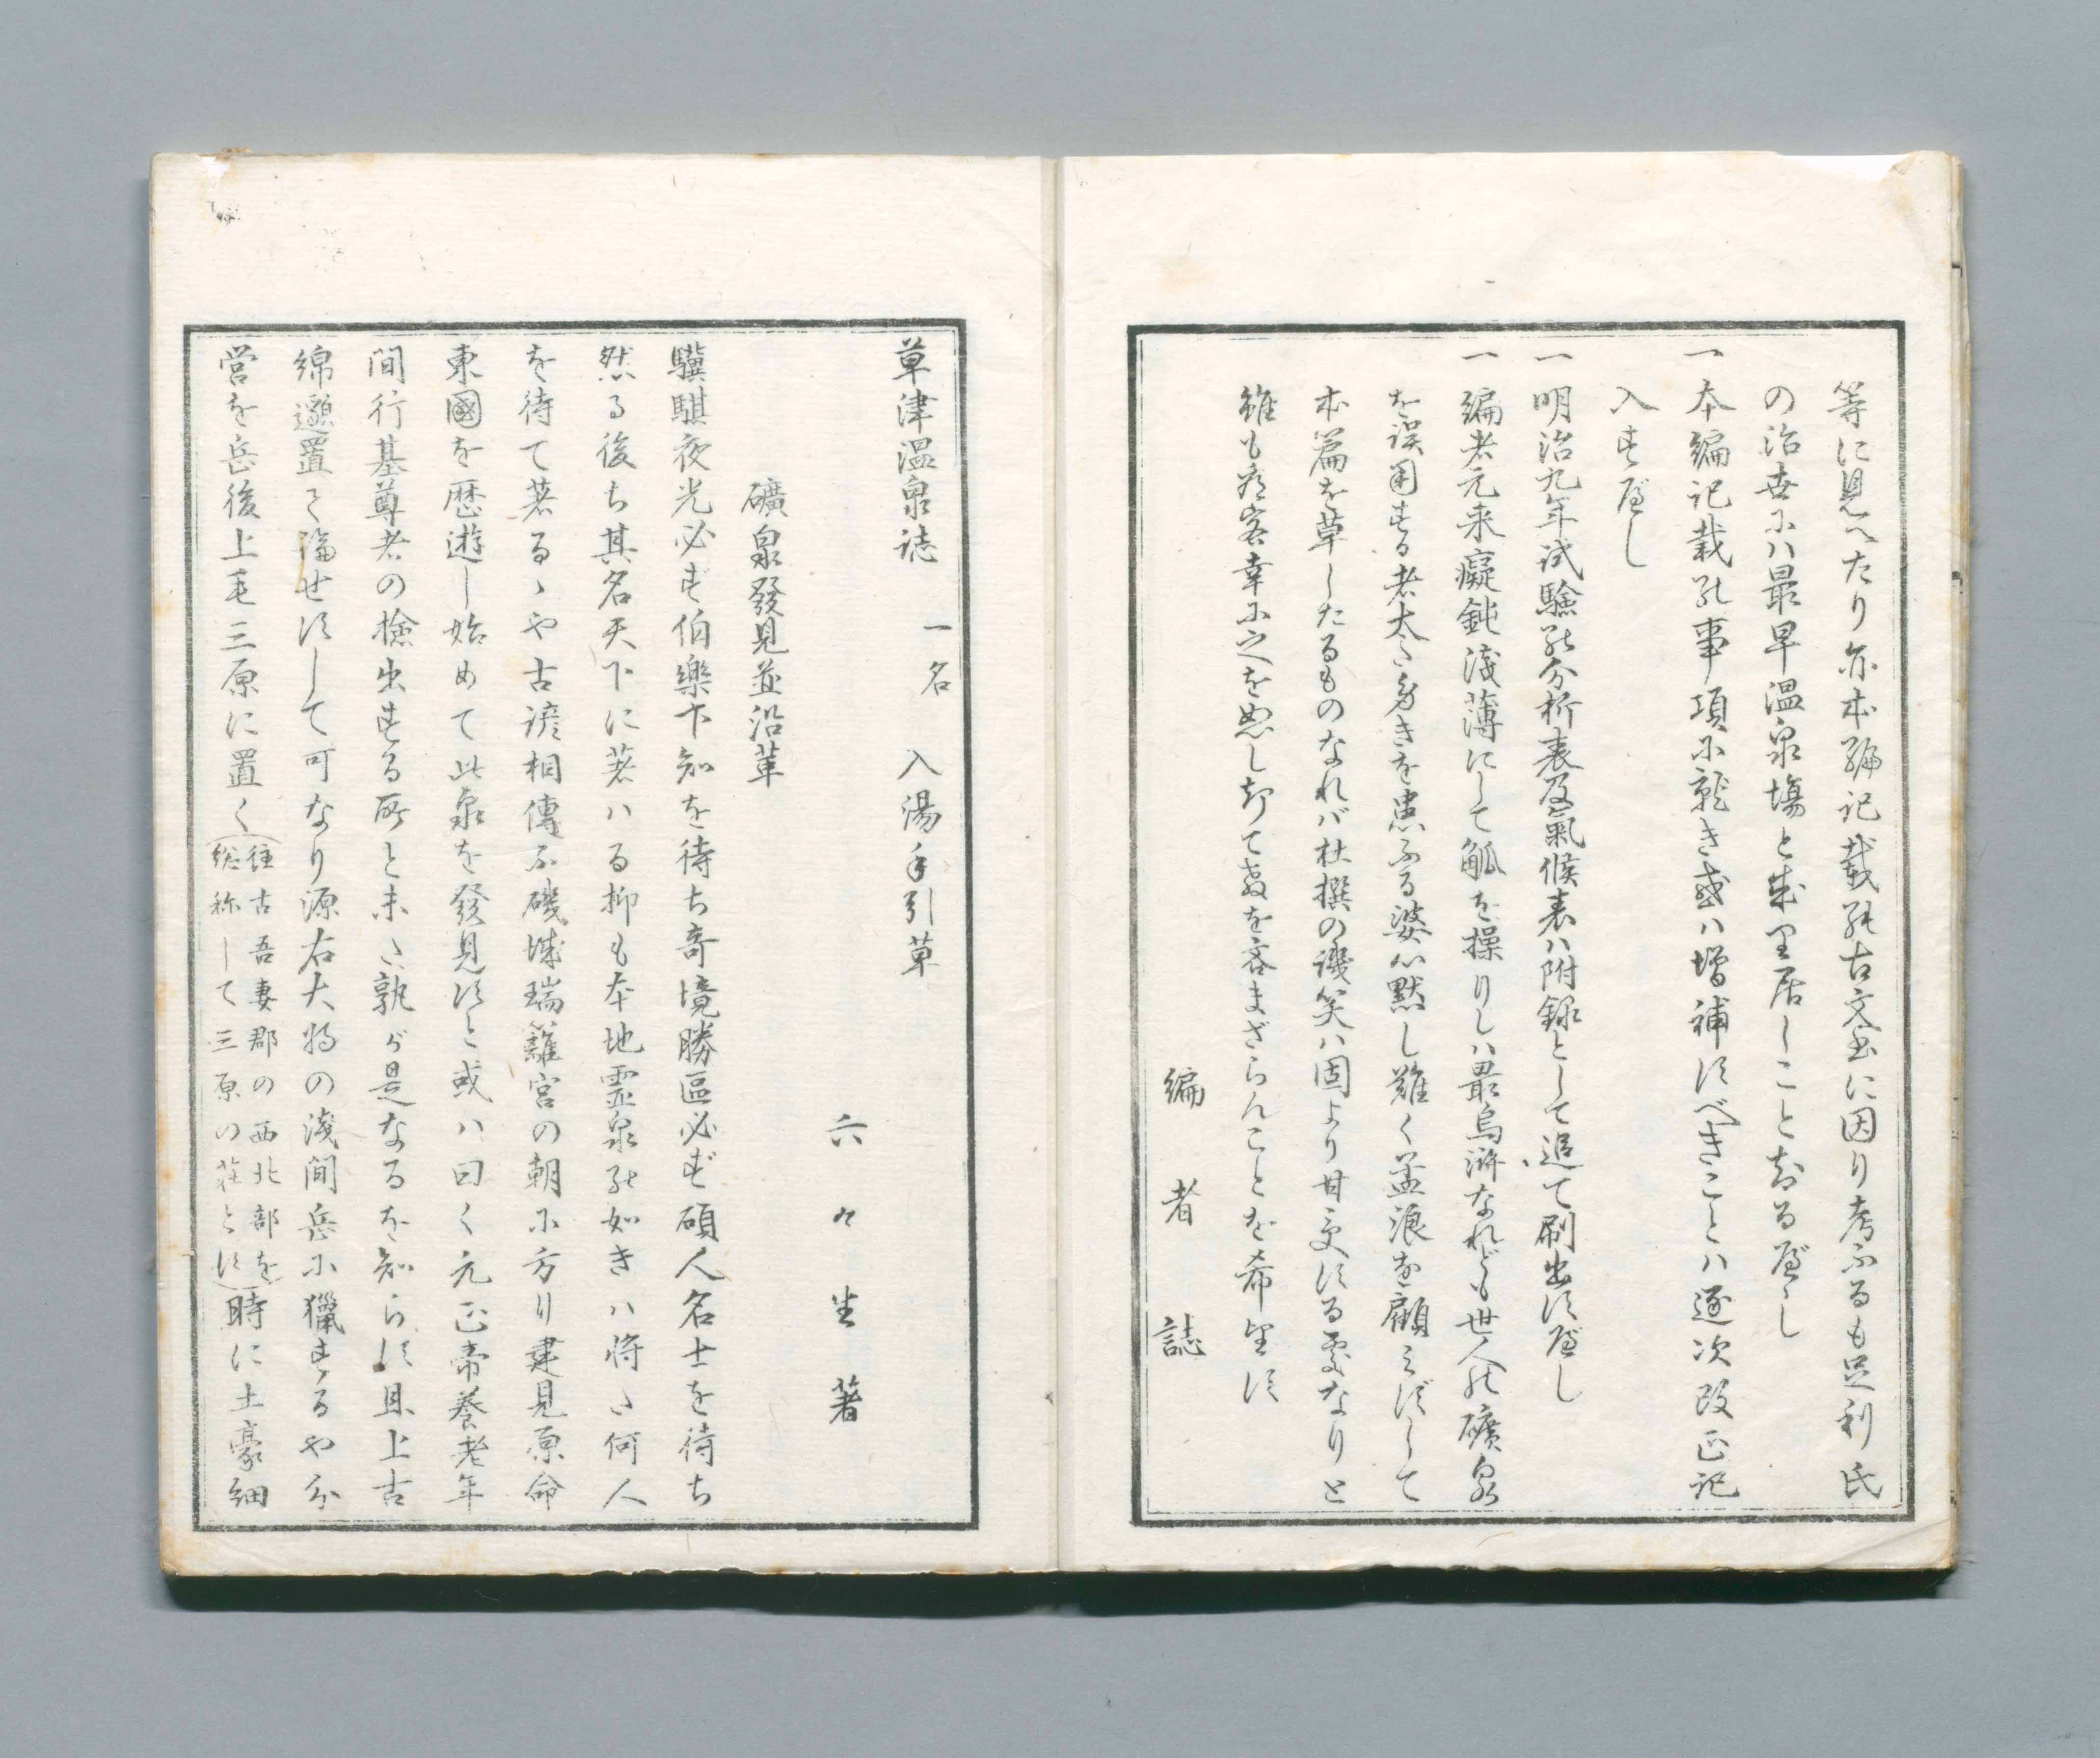 等に見へたり亦本編記載の古文書に因り考ふるも足利氏
の治世ニハ最早温泉場と成り居しことなるべし
一 本編記載の事項に就き或ハ増補すべきことハ逐次改正記
入すべし
一 明治九年試験の分析表及氣候表ハ附録として追て刷出すべし
一 編者元来癡鈍淺薄にして觚を操りしハ最烏滸なれども世人の礦泉
を誤用する者太た多きを患ふる婆心黙し難く孟浪を顧みずして
本篇を草したるものなれバ杜撰の譏笑ハ固より甘受する處なりと
雖も有客幸に之を恕し教を吝まざらんことを希望す
編者誌
草津温泉誌 一名 入湯手引草
六々生著
礦泉發見並沿革
驥騏夜光必ず伯樂卞知を待ち奇境勝區必ず碩人名士を待ち
然る後ち其名天下に著ハる抑も本地霊泉の如きハ将た何人
を待て著るゝや古諺相傳ふ磯城瑞籬宮の朝に方り建見原命
東國を歴遊し始めて此泉を發見すと或ハ曰く元正帝養老年
間行基尊者の撿出する所と未た孰が是なるを知らす且上古
綿邈置て論せすして可なり源右大将の淺間岳に獵するや分
営を岳後上毛三原に置く(往古吾妻郡の西北部を
総称して三原の荘とす)時に土豪細